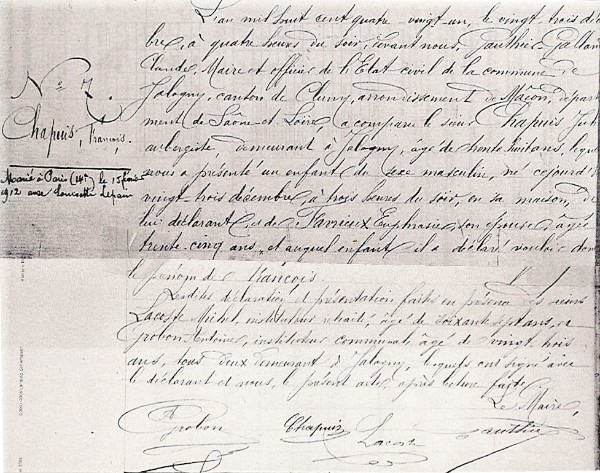 L'an mil huit cent quatre-vingt-un, le vingt-trois décem
bre, à quatre heures du soir, devant nous, Gauthier-Galland
Claude, Maire et officier de l'Etat civil de la commune de
Jalogny, canton de Cluny, arrondissement de Mâcon, départe
ment de Saône-et-Loire a comparu le sieur Chapuis
aubergiste demeurant à Jalogny, âgé de trente huit ans, lequel
nous a présenté un enfant du sexe masculin, né cejourd'hui
vingt-trois décembre, à trois heures du soir, en sa maison, de
lui déclarant, et de Euphrasie, son épouse, âgée
trente-cinq ans, et auquel enfant il a déclaré vouloir donner
le prénom de François.
Lesdites déclaration et présentation faites en présence des sieurs
Lacoste Michel, instituteur retraité, âgé de soixante sept ans, et
Grobon Antoine, instituteur communal, âgé de vingt trois
ans, tous deux demeurant à Jalogny, lesquels ont signé avec
le déclarant et nous, le présent acte, après lecture faite.
Le Maire,
Grobon Chapuis Lacoste Gauthier
N° 7.
Chapuis, François.
Marié à Paris (14e) le 15 février
1912 avec Lepain